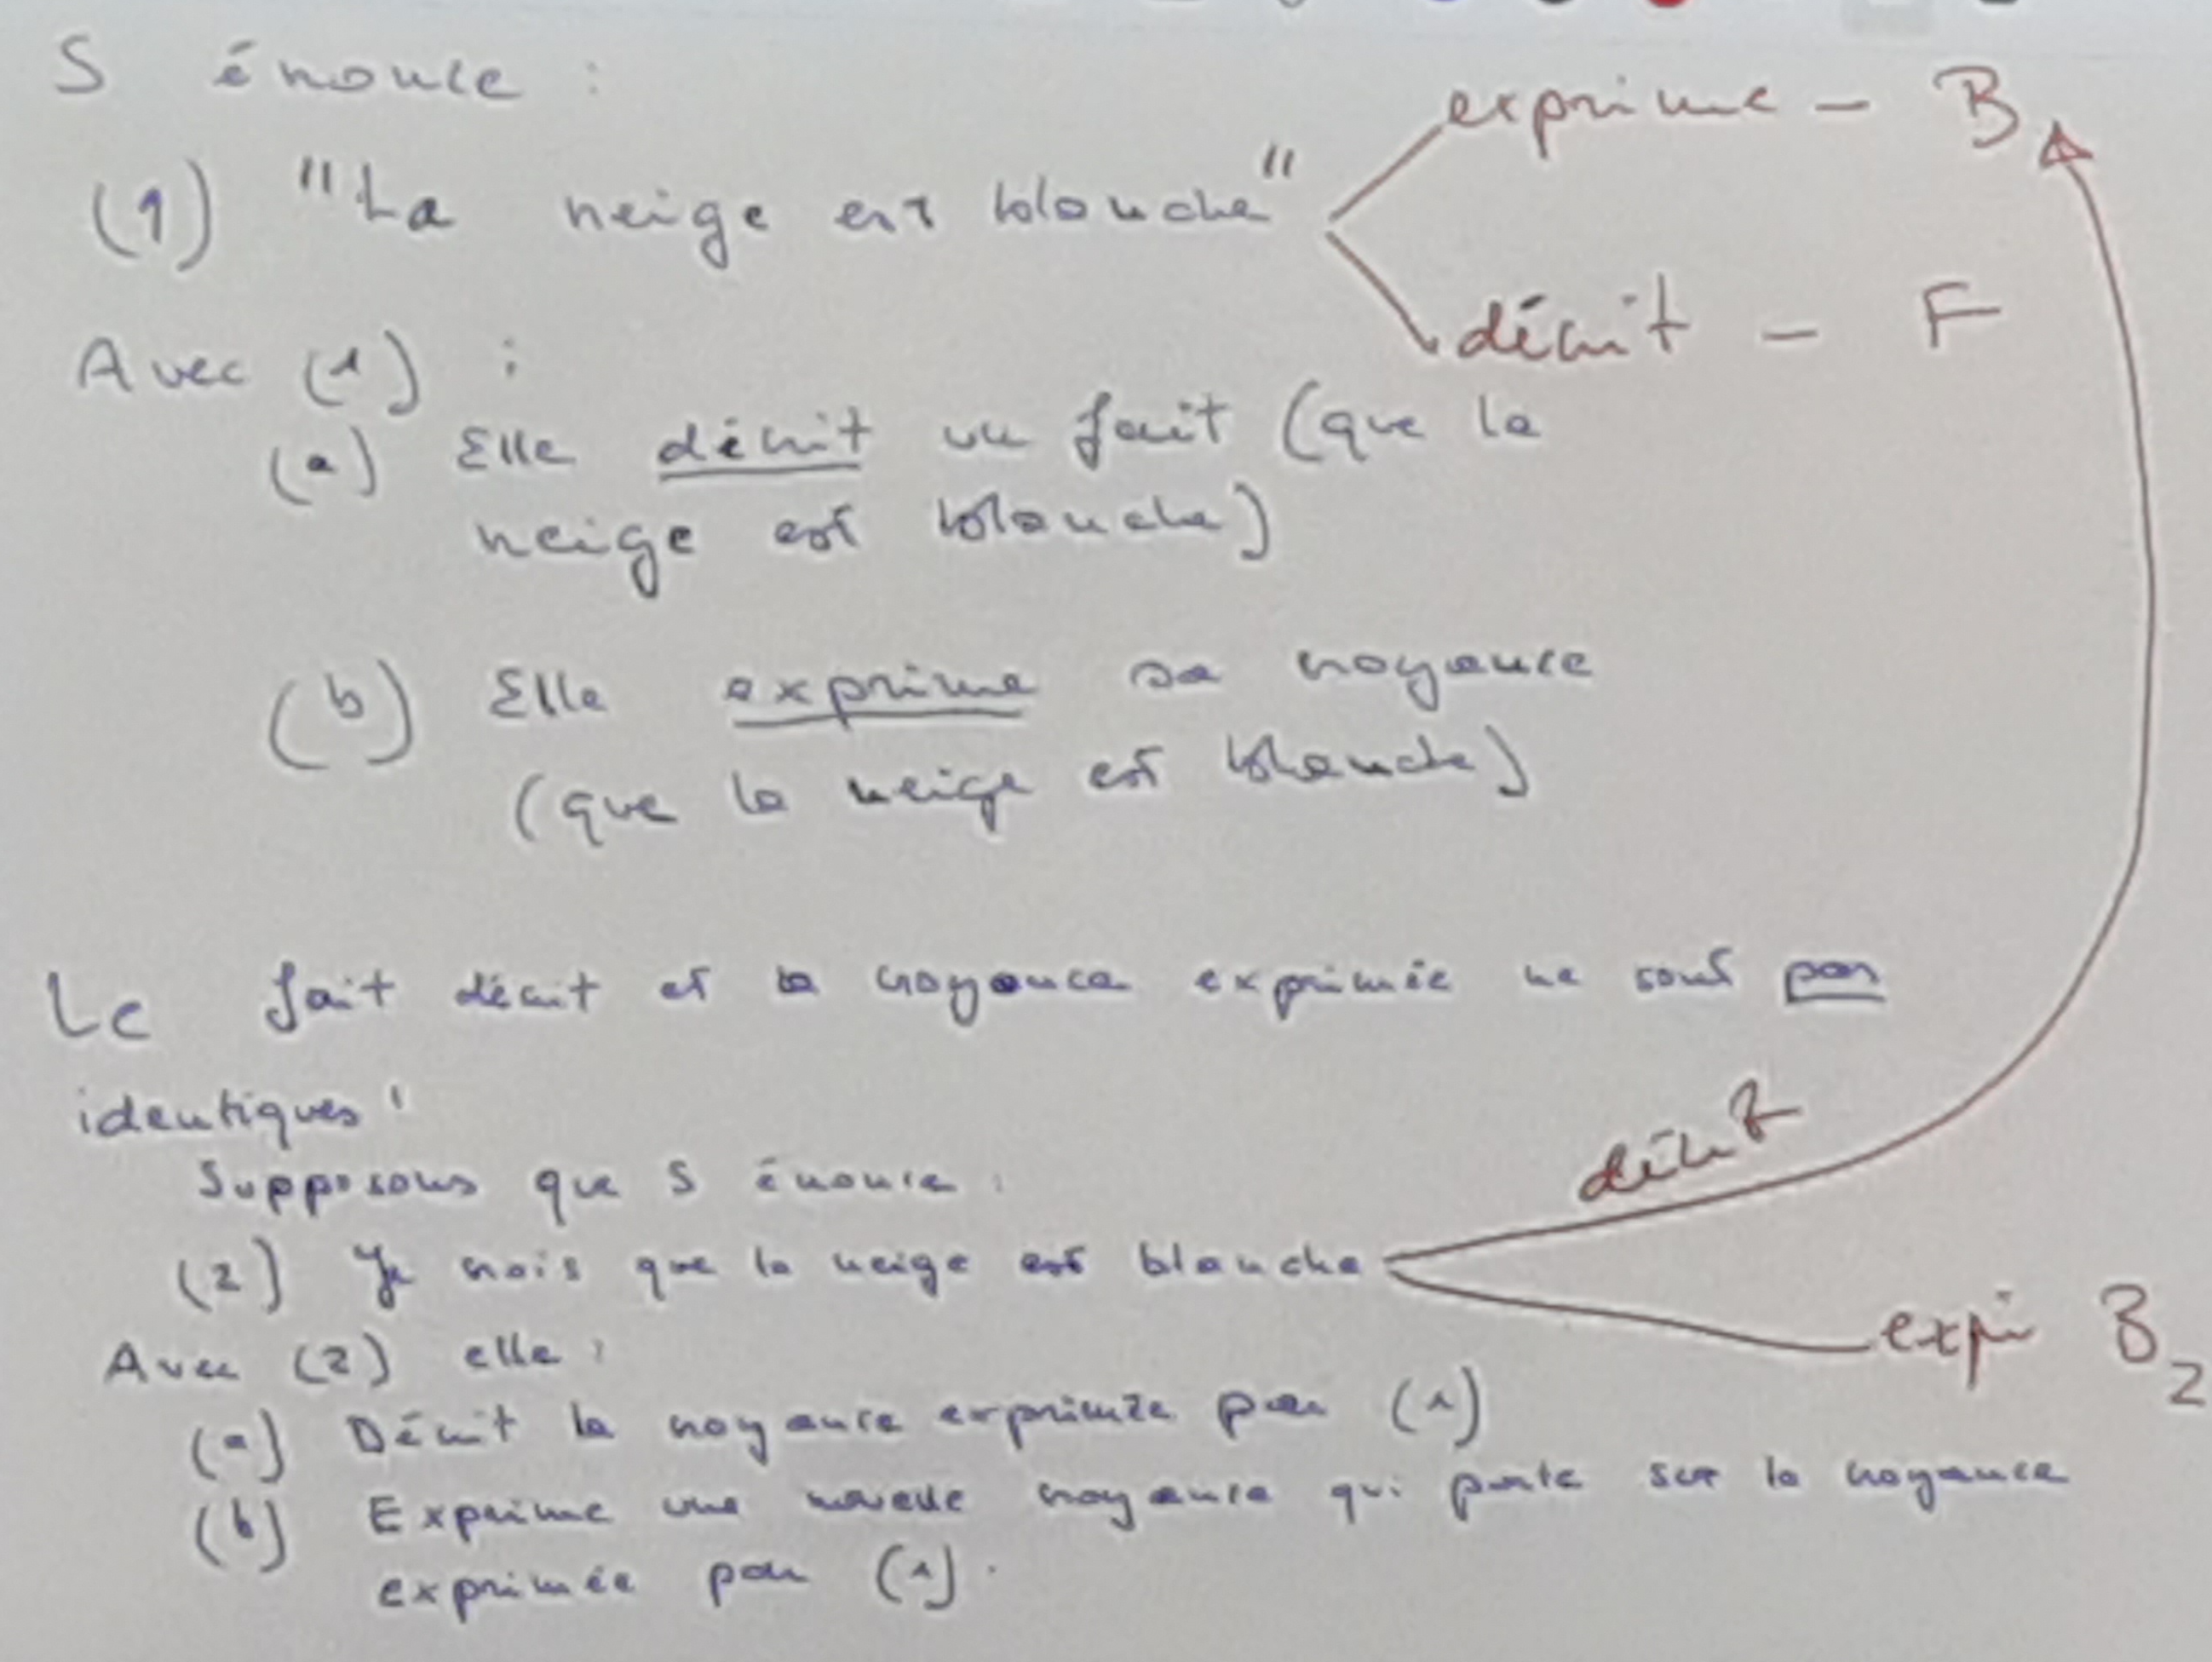 S énonce :
exprime - B
(1) "La neige est blanche"
décrit - F
Avec (1) :
(a) Elle décrit un fait (que la
neige est blanche)
(b) Elle exprime sa croyance
(que la neige est blanche)
Le fait décrit et la croyance exprimée ne sont pas
identiques :
décrit
Supposons que S énonce :
(2) Je crois que la neige est blanche
expri B2
Avec (2) elle :
(a) Décrit la croyance exprimée par (1)
(b) Exprime une nouvelle croyance qui porte sur la croyance
exprimée par (1).